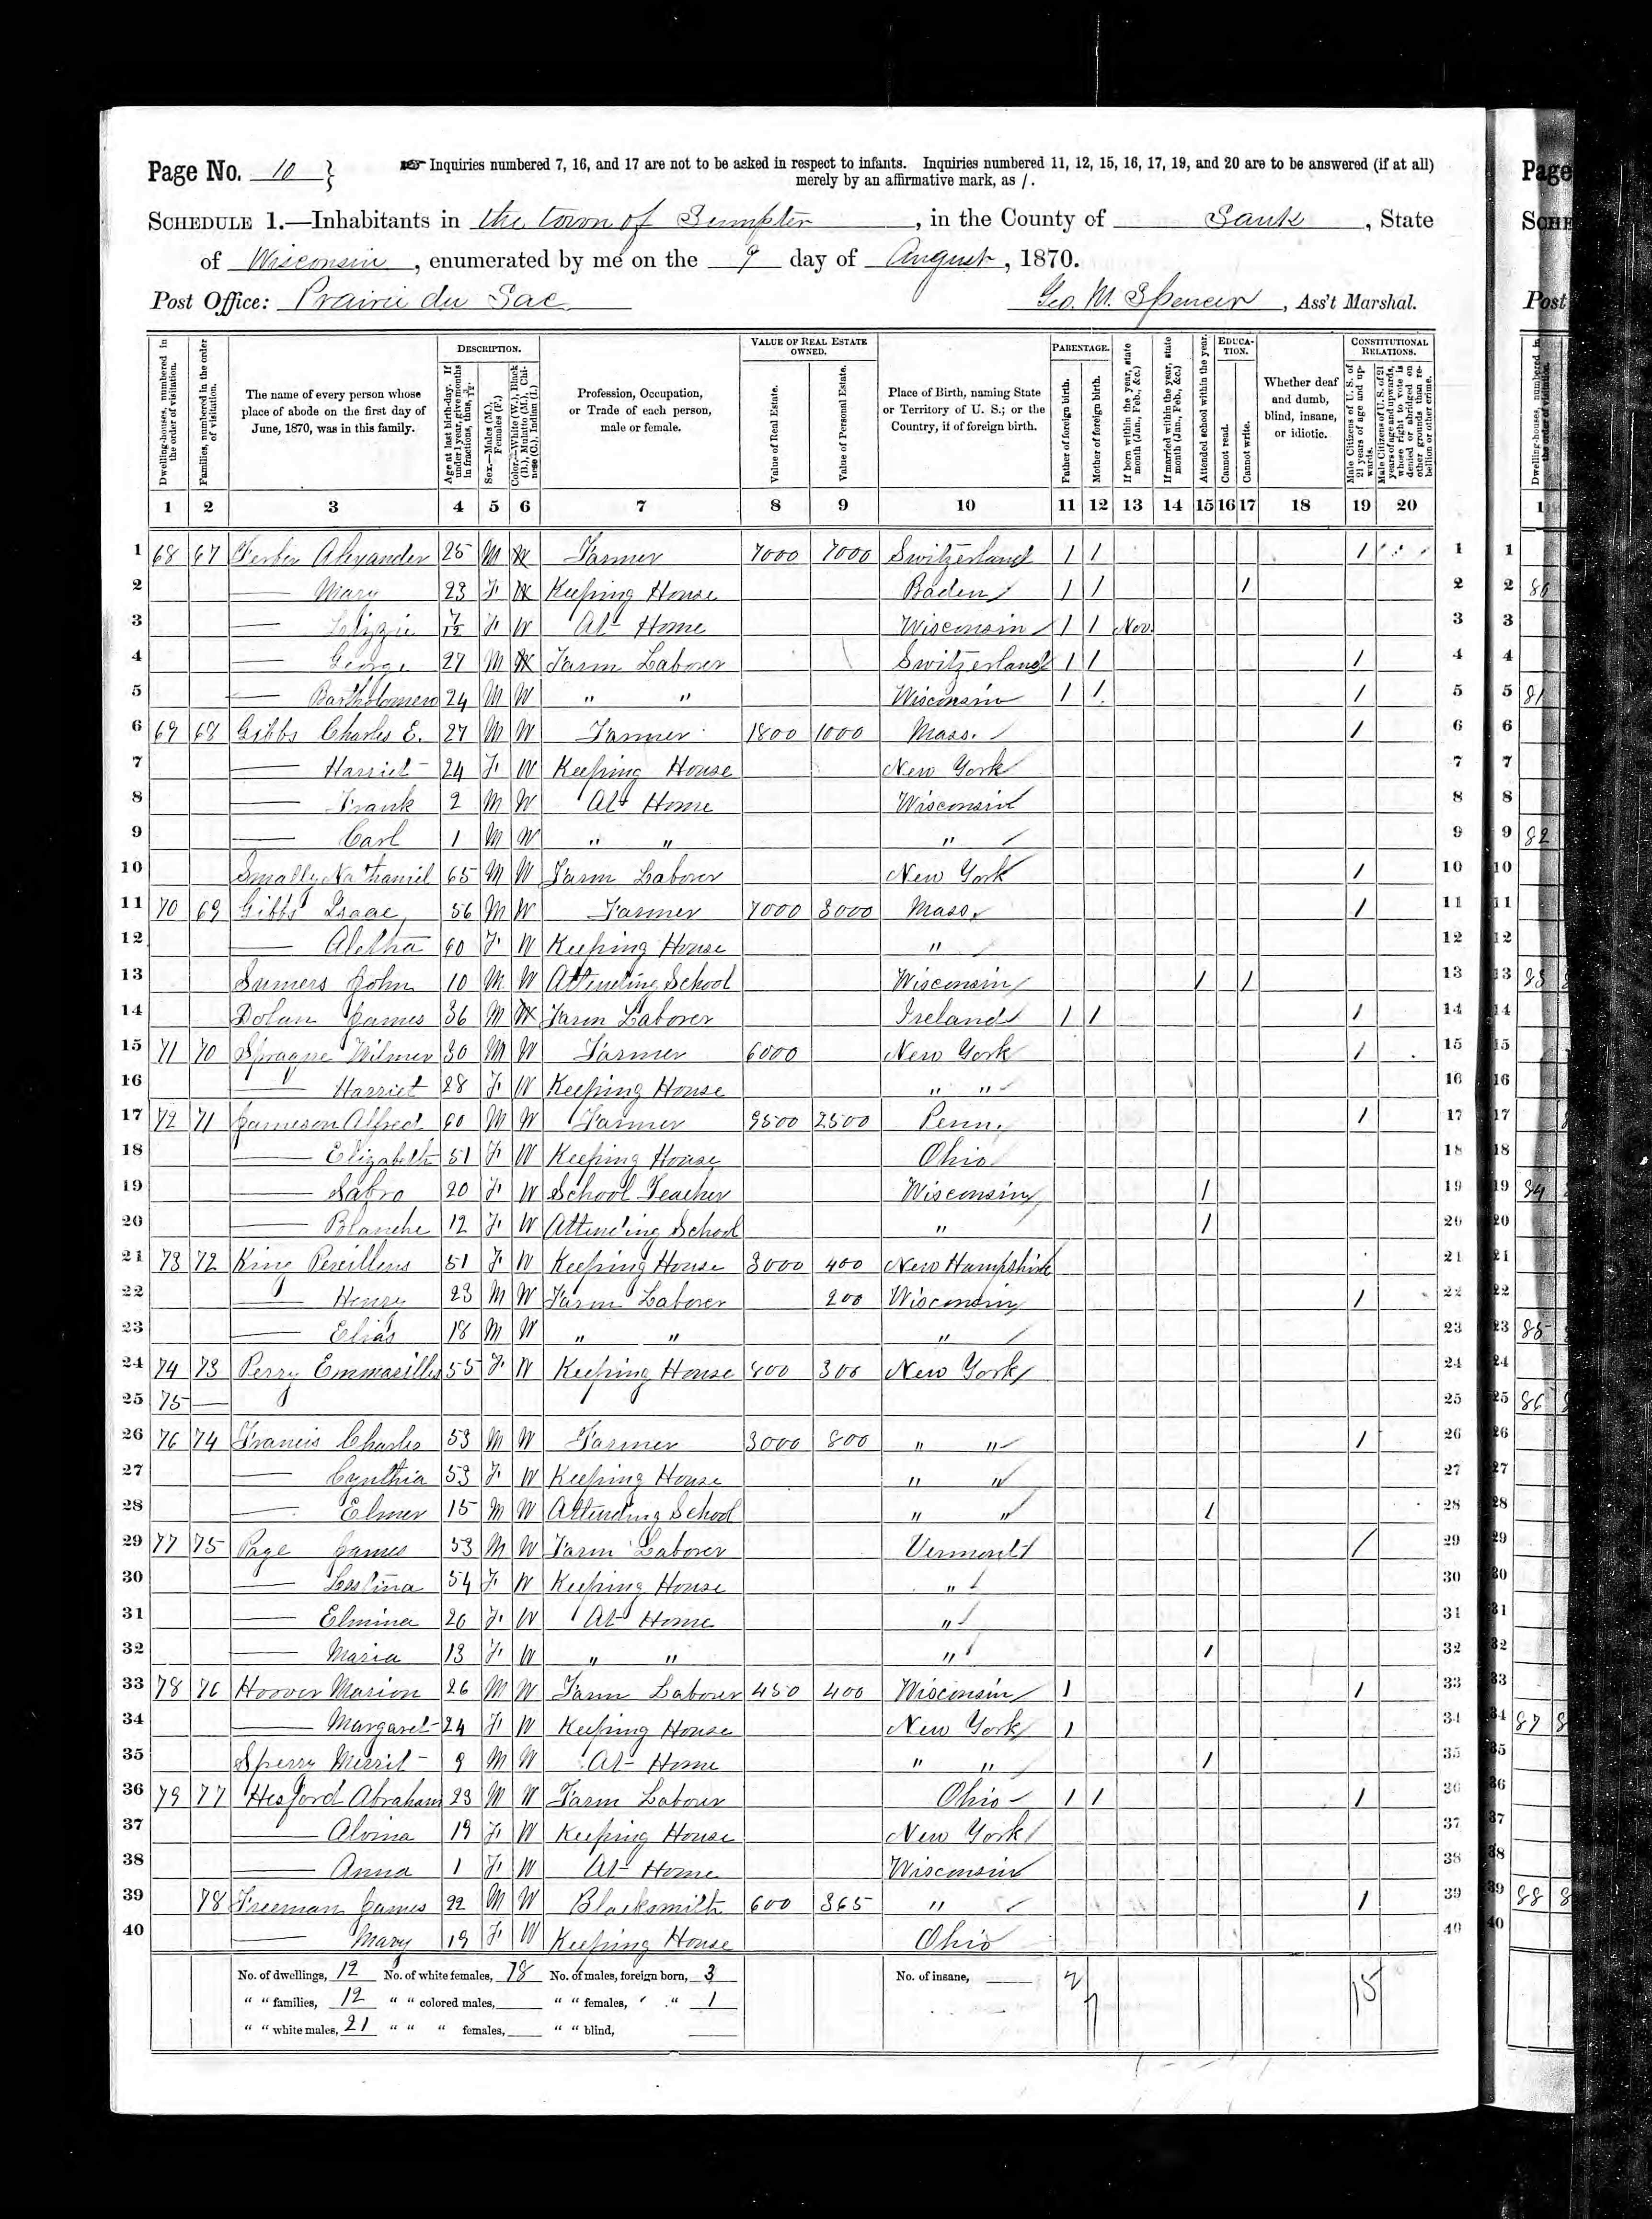 Page No. 10 }
☞ Inquiries numbered 7, 16, and 17 are not to be asked in respect to infants. Inquiries numbered 11, 12, 15, 16, 17, 19, and 20 are to be answered (if at all)
merely by an affirmative mark, as /.
SCHEDULE 1.—Inhabitants in the town of Sumpter, in the County of Sauk, State
of Wisconsin, enumerated by me on the 9 day of August, 1870.
Post Office: Prairie du Sac
Geo. M. Spencer, Ass't Marshal.
Dwelling-houses, numbered in the order of visitation.
Families, numbered in the order of visitation.
The name of every person whose place of abode on the first day of June, 1870, was in this family.
DESCRIPTION.
Age at last birth-day. If under 1 year, give months in fractions, thus, 3/12.
Sex.—Males (M.), Females (F.)
Color.—White (W.), Black (B.), Mulatto (M.), Chinese (C.), Indian (I.)
Profession, Occupation, or Trade of each person, male or female.
VALUE OF REAL ESTATE OWNED.
Value of Real Estate.
Value of Personal Estate.
Place of Birth, naming State or Territory of U. S.; or the Country, if of foreign birth.
PARENTAGE.
Father of foreign birth.
Mother of foreign birth.
If born within the year, state month (Jan., Feb., &c.)
If married within the year, state month (Jan., Feb., &c.)
Attended school within the year.
EDUCATION.
Cannot read.
Cannot write.
Whether deaf and dumb, blind, insane, or idiotic.
CONSTITUTIONAL RELATIONS.
Male Citizens of U. S. of 21 years of age and upwards.
Male Citizens of U. S. of 21 years of age and upwards, whose right to vote is denied or abridged on other grounds than rebellion or other crime.
1 2 3 4 5 6 7 8 9 10 11 12 13 14 15 16 17 18 19 20
1 68 67 Alexander 25 M W Farmer 7000 7000 Switzerland / / / 1
2 — Mary 23 F W Keeping House Baden / / / 2
3 — Lizzie 7/12 F W At Home Wisconsin / / Nov. 3
4 — George 27 M W Farm Laborer Switzerland / / / 4
5 — Bartholomew 24 M W " " Wisconsin / / / 5
6 69 68 Gibbs Charles E. 27 M W Farmer 1800 1000 Mass. / 6
7 — Harriet 24 F W Keeping House New York 7
8 — Frank 2 M W At Home Wisconsin 8
9 — Carl 1 M W " " " 9
10 Smally Nathaniel 65 M W Farm Laborer New York / 10
11 70 69 Gibbs Isaac 56 M W Farmer 7000 3000 Mass. / 11
12 — Aletha 60 F W Keeping House " 12
13 Sumers John 10 M W Attending School Wisconsin / / 13
14 Dolan James 36 M W Farm Laborer Ireland / / / 14
15 71 70 Sprague Wilmer 30 M W Farmer 6000 New York / 15
16 — Harriet 28 F W Keeping House " " 16
17 72 71 Jameson Alfred 60 M W Farmer 9500 2500 Penn. / 17
18 — Elizabeth 51 F W Keeping House Ohio 18
19 — Sabra 20 F W School Teacher Wisconsin / 19
20 — Blanche 12 F W Attending School " / 20
21 73 72 King 51 F W Keeping House 3000 400 New Hampshire 21
22 — Henry 23 M W Farm Laborer 200 Wisconsin / 22
23 — Elias 18 M W " " " 23
24 74 73 Perry 55 F W Keeping House 800 300 New York 24
25 75 — 25
26 76 74 Francis Charles 53 M W Farmer 3000 800 " " / 26
27 — Cynthia 53 F W Keeping House " " 27
28 — Elmer 15 M W Attending School " " / 28
29 77 75 Page James 53 M W Farm Laborer Vermont / 29
30 — 54 F W Keeping House " 30
31 — Elmina 20 F W At Home " 31
32 — Maria 13 F W " " " / 32
33 78 76 Hoover Marion 26 M W Farm Laborer 450 400 Wisconsin / / 33
34 — Margaret 24 F W Keeping House New York / 34
35 Sperry Merrit 9 M W At Home " " / 35
36 79 77 Hesford Abraham 23 M W Farm Laborer Ohio / / / 36
37 — Alvina 19 F W Keeping House New York 37
38 — Anna 1 F W At Home Wisconsin 38
39 78 Freeman James 22 M W Blacksmith 600 365 " / 39
40 — Mary 19 F W Keeping House Ohio 40
No. of dwellings, 12 No. of white females, 18 No. of males, foreign born, 3 No. of insane, —
" " families, 12 " " colored males, " " females, " " 1
" " white males, 21 " " " females, " " blind,
15